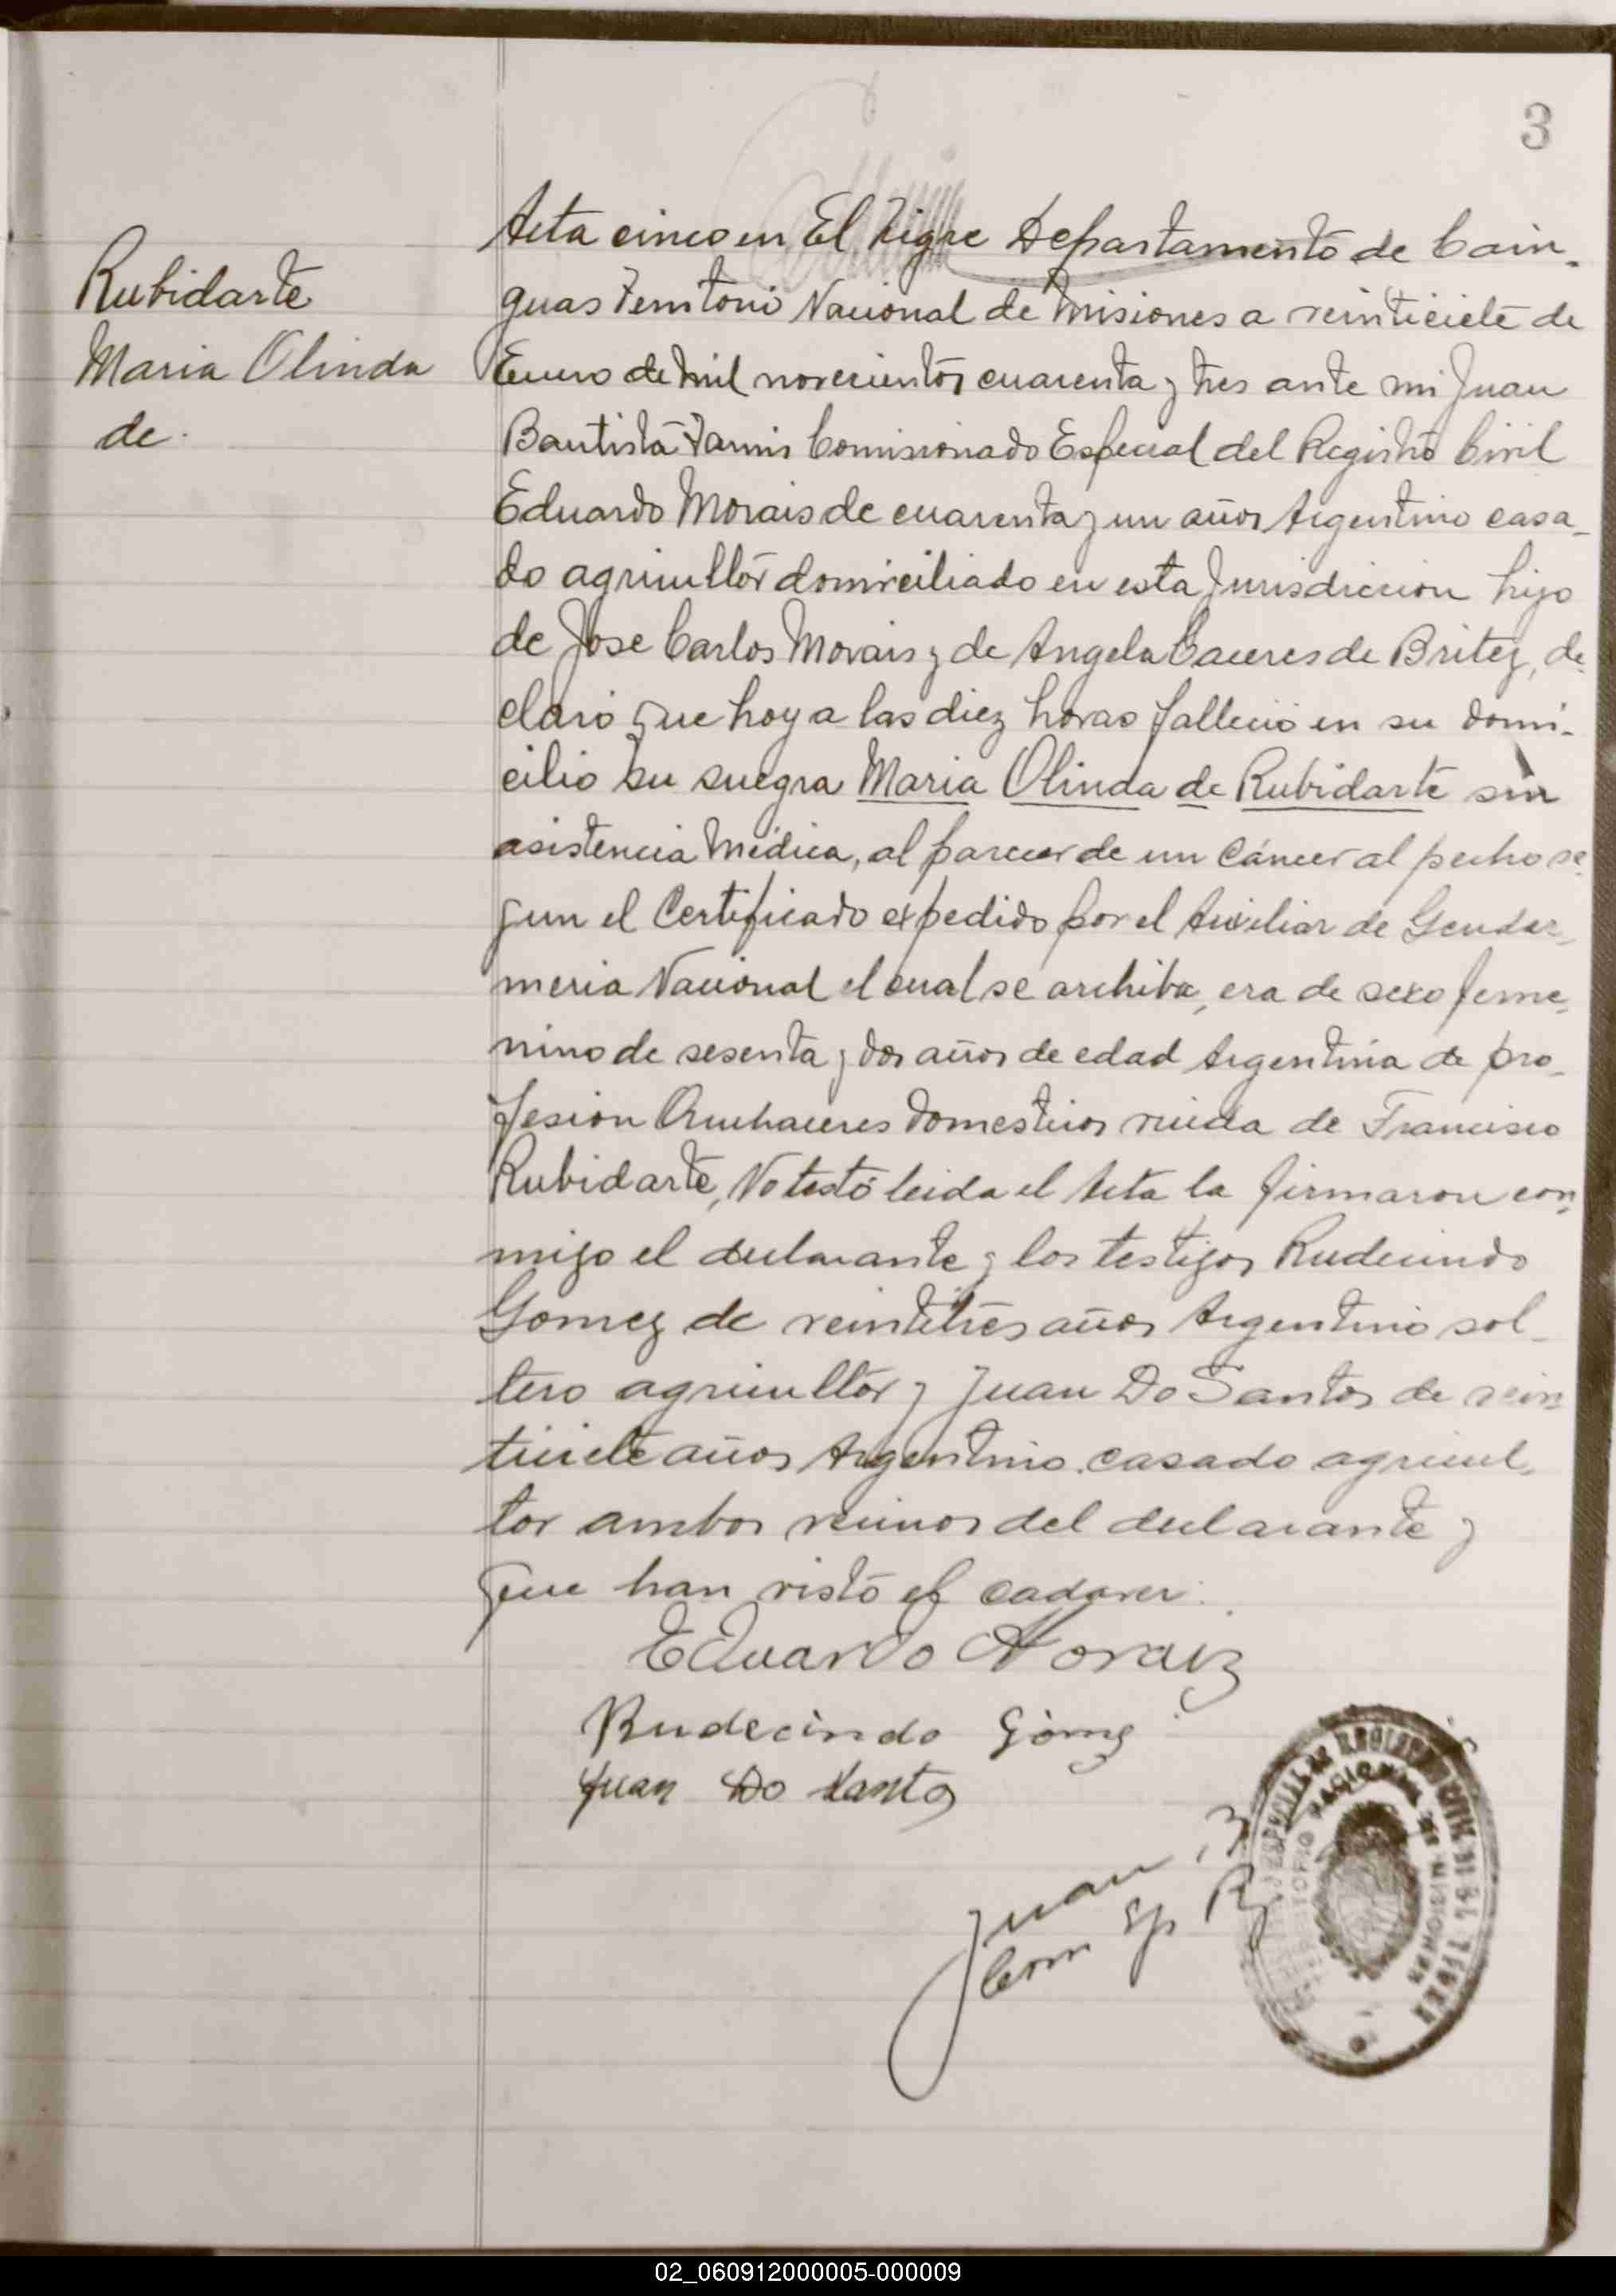 3
Rubidarte
Maria Olinda
de.
Acta cinco en El Tigre Departamento de Cain-
guas Territorio Nacional de Misiones a veinticiete de
Enero de mil novecientos cuarenta y tres ante mi Juan
Bautista Comisionado Especial del Registro Civil
Eduardo Morais de cuarenta y un años Argentino casa-
do agricultor domiciliado en esta Jurisdiccion hijo
de Jose Carlos Morais y de Angela Caceres de Britez, de-
claró que hoy a las diez horas falleció en su domi-
cilio su suegra Maria Olinda de Rubidarte sin
asistencia Médica, al parecer de un Cáncer al pecho se-
gun el Certificado expedido por el Auxiliar de Gendar-
meria Nacional el cual se archiba, era de sexo feme-
nino de sesenta y dos años de edad Argentina de pro-
fesion Quehaceres Domesticos viuda de Francisco
Rubidarte, No testó leida el Acta la firmaron con-
migo el declarante y los testigos Rudecindo
Gomez de veintitrés años Argentino sol-
tero agricultor y Juan Do Santos de vein-
ticiete años Argentino casado agricul-
tor ambos vecinos del declarante y
que han visto el cadaver.
Eduardo Moraiz
Rudecindo Gómez
Juan Do Santos
Juan B
Com Esp R
REGISTRO CIVIL
NACIONAL DE MISIONES
02_060912000005-000009